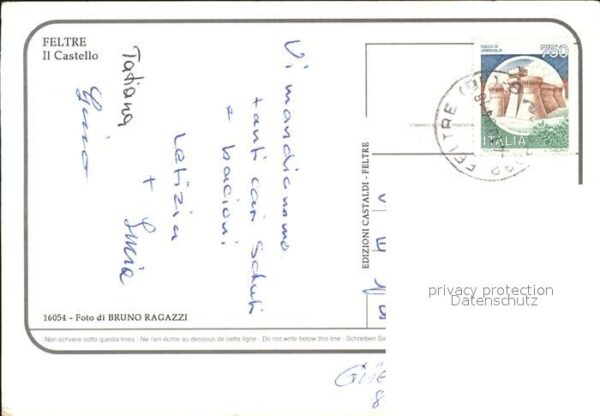 FELTRE
Il Castello
Vi mandiamo
tanti cari saluti
e bacioni
Letizia
+ Lucia
Tatiana
EDIZIONI CASTALDI - FELTRE
750
ROCCA DI
URBISAGLIA
ITALIA
FELTRE (BL)
16054 - Foto di BRUNO RAGAZZI
Non scrivere sotto questa linea · Ne rien écrire au dessous de cette ligne · Do not write below this line · Schreiben Sie
privacy protection
Datenschutz
8